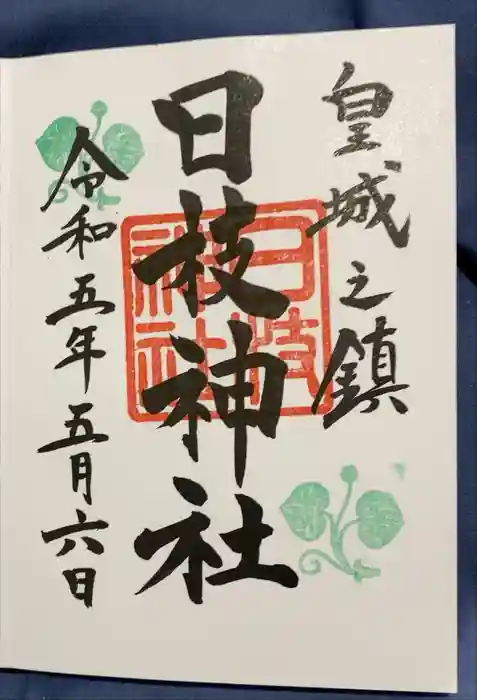 皇城之鎮
日枝神社
日枝神社
令和五年五月六日